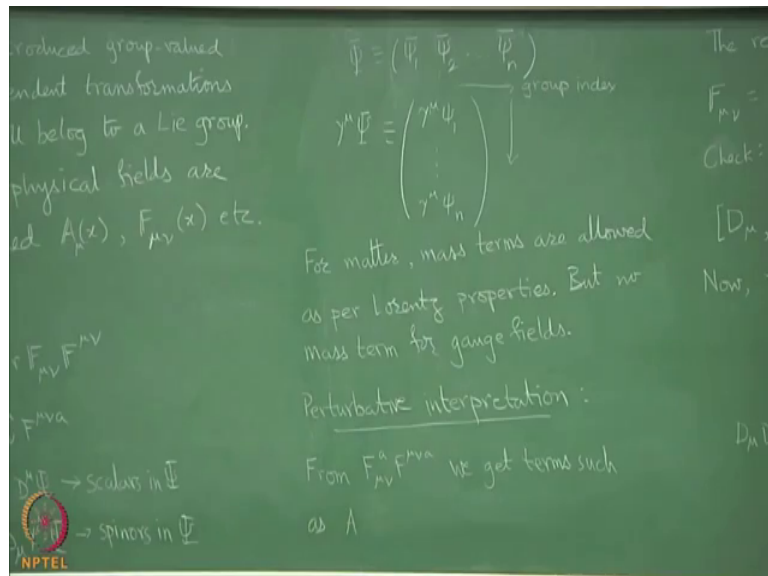 roduced group-valued
endent transformations
U belog to a Lie group.
physical fields are
ed A_μ(x), F_μν(x) etc.
r F_μν F^μν
F^μνa
D^μΨ → scalars in Ψ
D_μ Ψ → spinors in Ψ
Ψ̄ ≡ (Ψ̄_1 Ψ̄_2 ... Ψ̄_n)
→ group index
γ^μ Ψ ≡ ( γ^μ ψ_1
⋮
γ^μ ψ_n ) ↓
For matter, mass terms are allowed
as per Lorentz properties. But no
mass term for gauge fields.
Perturbative interpretation :
From F^a_μν F^μνa we get terms such
as A
The re
F_μν =
Check:
[D_μ ,
Now,
D_μ
NPTEL